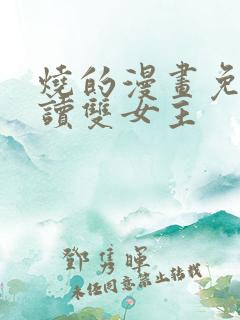 燒的漫畫免
讀雙女主
鄧雋暉
未經同意禁止轉載